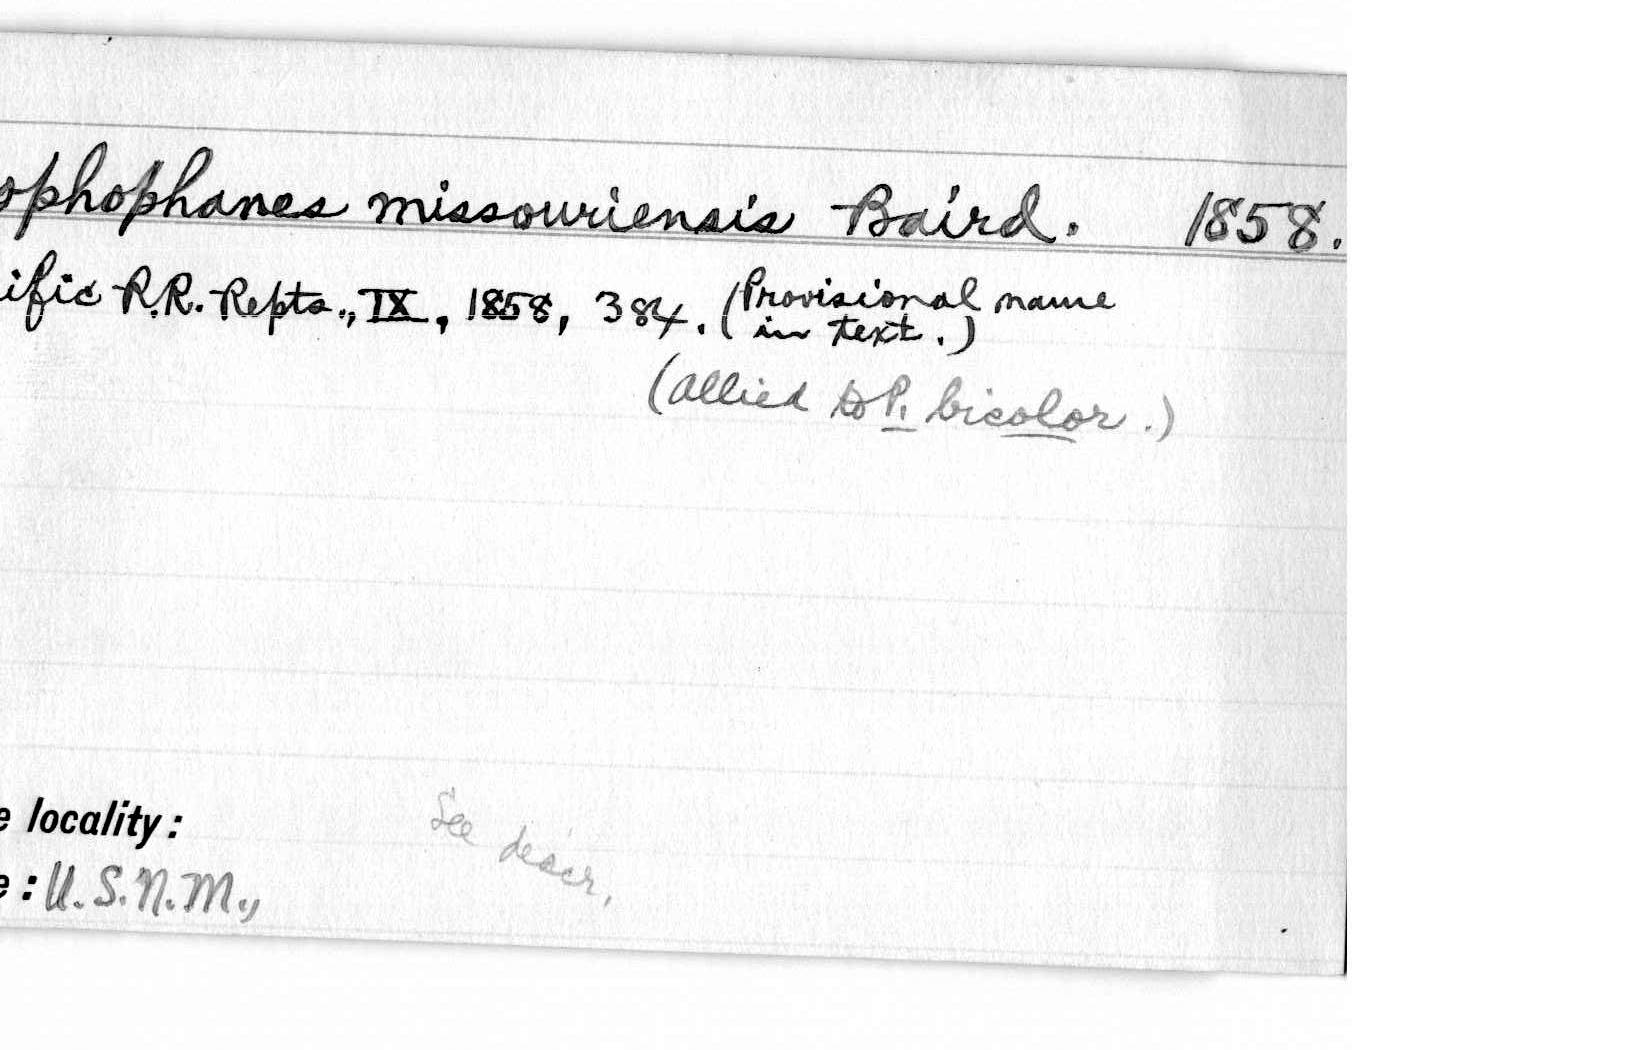 ophophanes missouriensis Baird. 1858.
ific R.R. Repts., IX, 1858, 384. (Provisional name
in text.)
(allied to P. bicolor.)
e locality:
See descr.
e: U.S.N.M.,